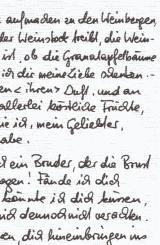 aufmachen zu den Weinbergen,
der Weinstock treibt, die Wein-
ist, ob die Granatapfelbäume
ich dir meine Liebe schenken.
ihren Duft, und an
allerlei köstliche Früchte,
ich, mein Geliebter,
habe.
ein Bruder, der die Brust
Fände ich dich
könnte ich dich küssen,
mich dennoch nicht verachten.
dich hineinbringen ins